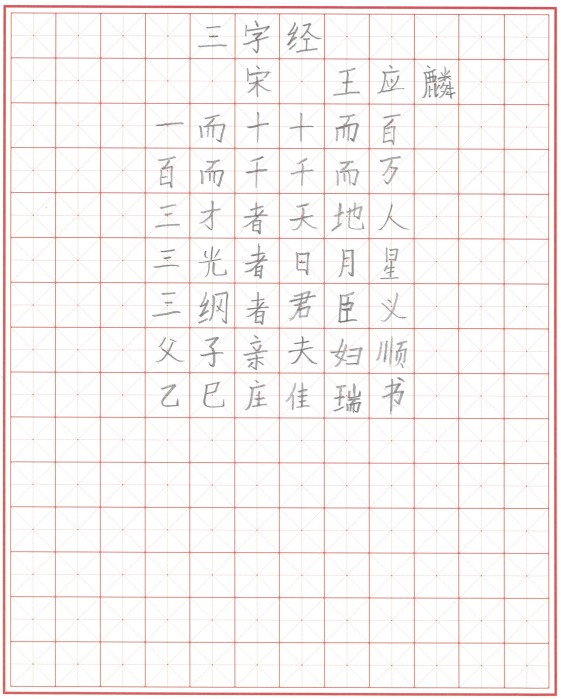 三字经
宋 王应麟
一而十十而百
百而千千而万
三才者天地人
三光者日月星
三纲者君臣义
父子亲夫妇顺
乙巳庄佳瑞书